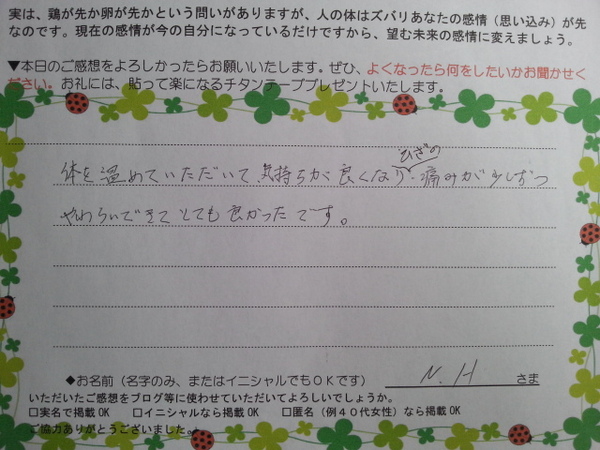 実は、鶏が先か卵が先かという問いがありますが、人の体はズバリあなたの感情（思い込み）が先
なのです。現在の感情が今の自分になっているだけですから、望む未来の感情に変えましょう。
▼本日のご感想をよろしかったらお願いいたします。ぜひ、よくなったら何をしたいかお聞かせく
ださい。お礼には、貼って楽になるチタンテーププレゼントいたします。
ひざの
体を温めていただいて気持ちが良くなり、痛みが少しずつ
やわらいできてとても良かったです。
◆お名前（名字のみ、またはイニシャルでもOKです） N.H さま
いただいたご感想をブログ等に使わせていただいてよろしいでしょうか。
□実名で掲載OK □イニシャルなら掲載OK □匿名（例４０代女性）なら掲載OK
ご協力ありがとうございました。